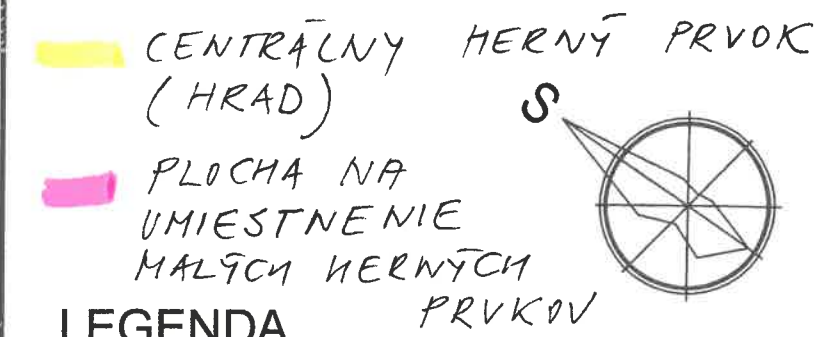 CENTRÁLNY HERNÝ PRVOK
(HRAD)
S
PLOCHA NA
UMIESTNENIE
MALÝCH HERNÝCH
PRVKOV
LEGENDA